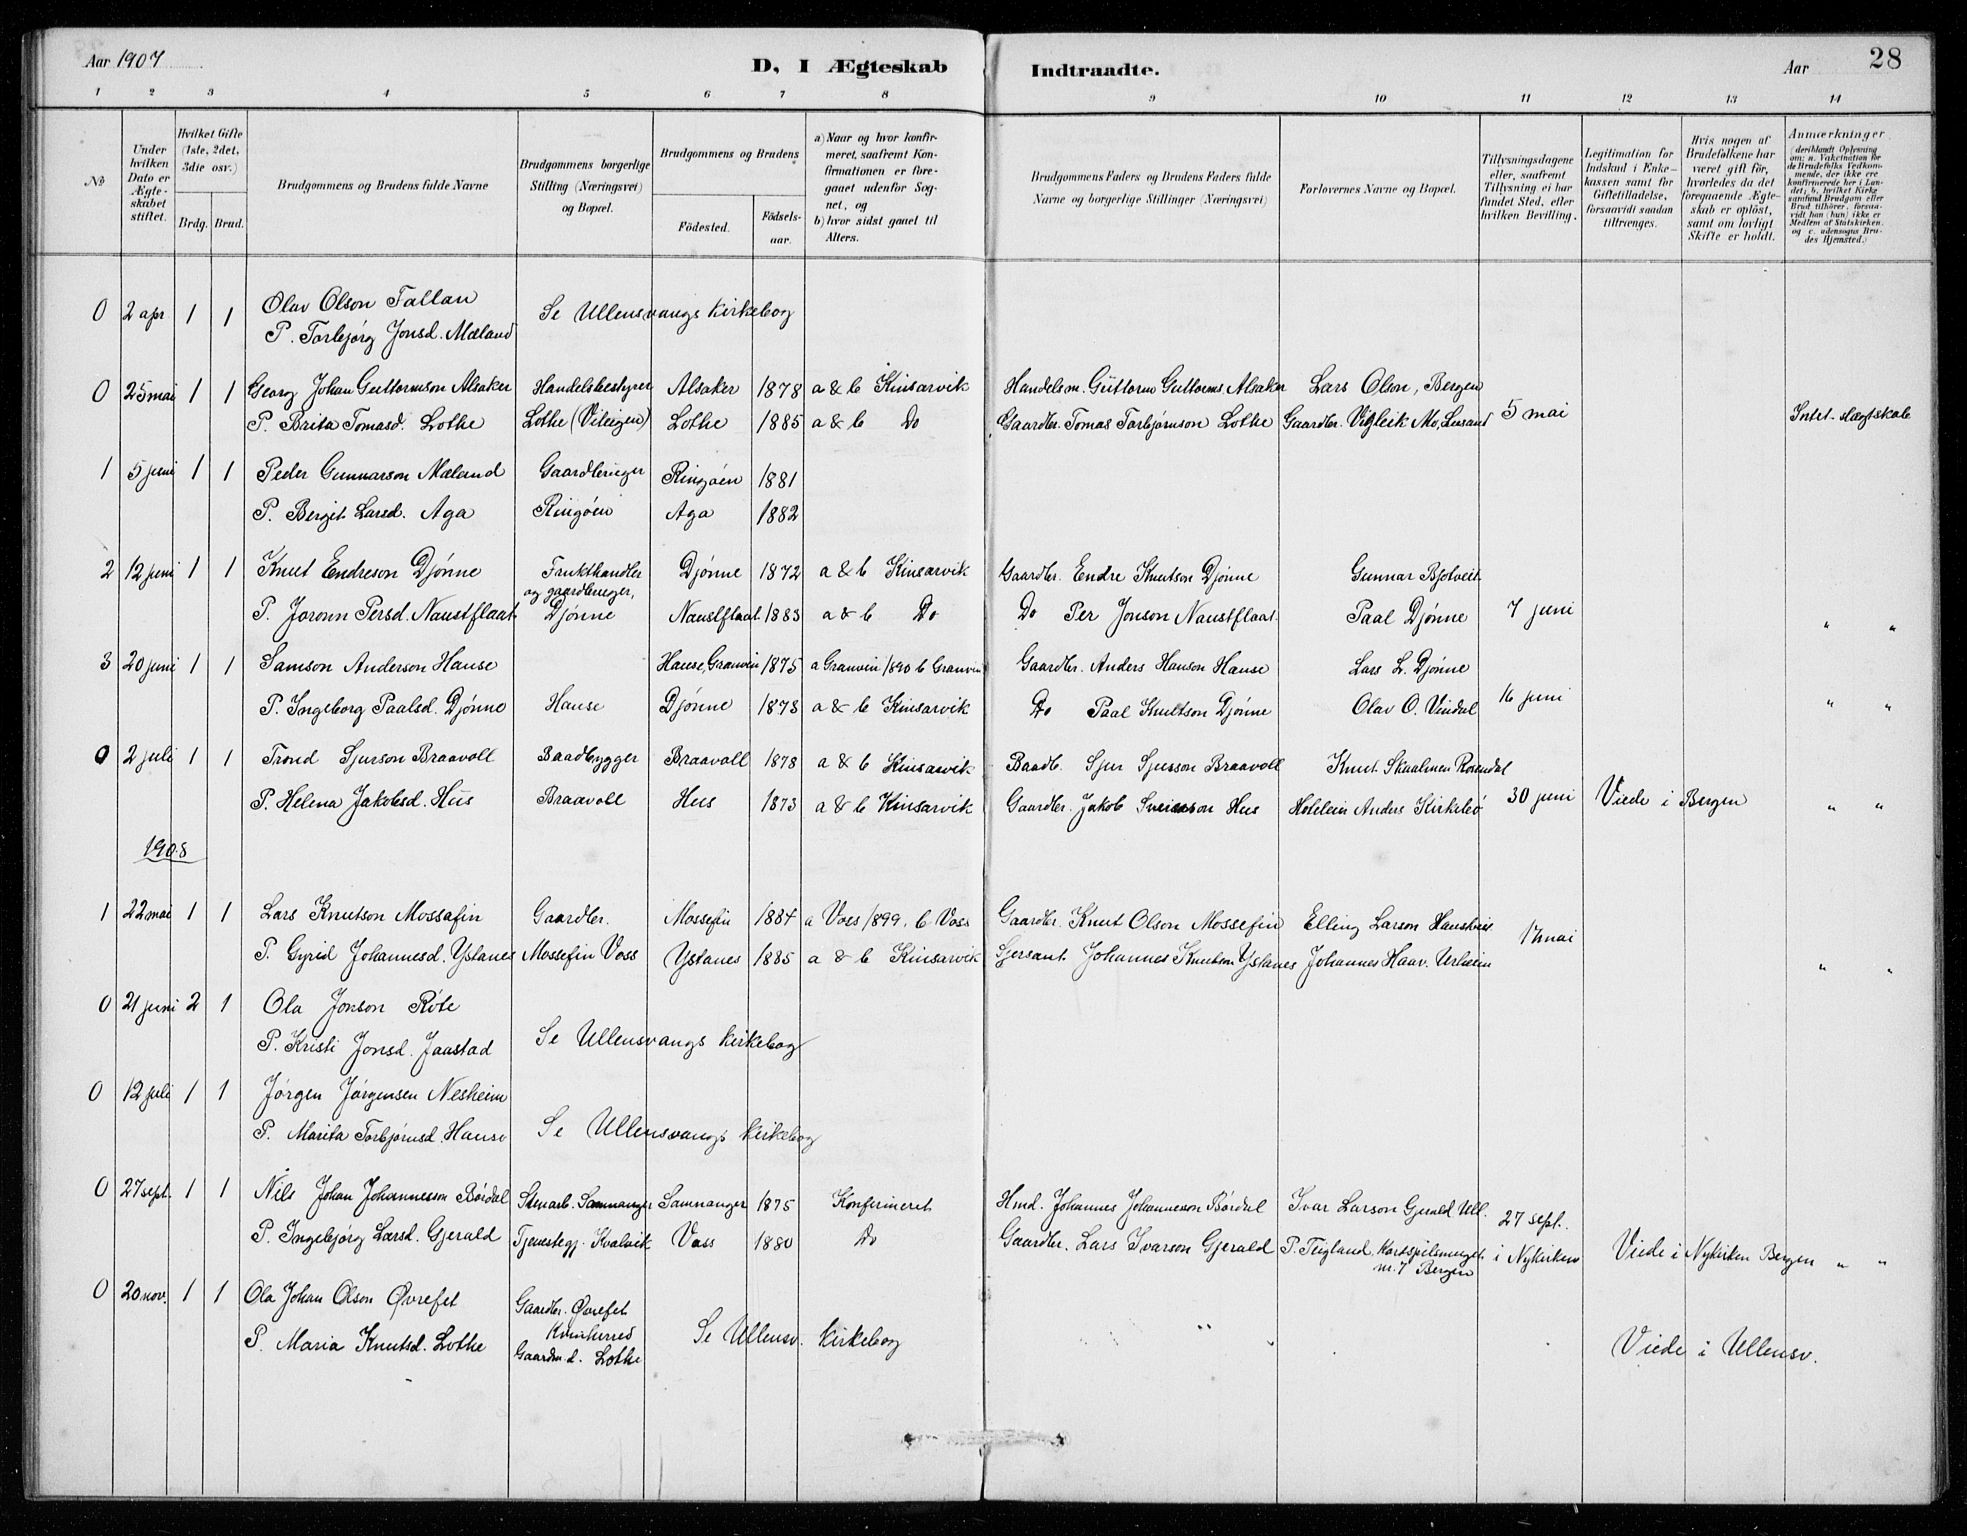 Aar 1907
D, I Ægteskab Indtraadte.
Aar
28
1 2 3 4 5 6 7 8 9 10 11 12 13 14
№
Under hvilken Dato er Ægteskabet stiftet.
Hvilket Gifte (1ste, 2det, 3die osv.)
Brdg. Brud.
Brudgommens og Brudens fulde Navne
Brudgommens borgerlige Stilling (Næringsvei) og Bopæl.
Brudgommens og Brudens
Födested. Födselsaar.
a) Naar og hvor konfirmeret, saafremt Konfirmationen er foregaaet udenfor Sognet, og
b) hvor sidst gaaet til Alters.
Brudgommens Faders og Brudens Faders fulde Navne og borgerlige Stillinger (Næringsvei)
Forlovernes Navne og Bopæl.
Tillysningsdagene eller, saafremt Tillysning ei har fundet Sted, efter hvilken Bevilling.
Legitimation for Indskud i Enkekassen samt for Giftetilladelse, forsaavidt saadan tiltrænges.
Hvis nogen af Brudefolkene har været gift för, hvorledes da det foregaaende Ægteskab er oplöst, samt om lovligt Skifte er holdt.
Anmærkninger (deriblandt Oplysning om: a. Vakcination for de Brudefolks Vedkommende, der ikke ere konfirmerede her i Landet; b. hvilket Kirkesamfund Brudgom eller Brud tilhörer, forsaavidt han (hun) ikke er Medlem af Statskirken, og c. udensogns Brudes Hjemsted.)
0 2 apr 1 1 Olav Olson Tallan Se Ullensvangs Kirkebog
P. Torbjørg Jonsd. Mæland
0 25 mai 1 1 Georg Johan Guttormson Alsaker Handelsbestyrer Alsaker 1878 a & b Kinsarvik Handelsm. Guttorm Guttorms. Alsaker Lars Olson, Bergen
P. Brita Tomasd. Lothe Lothe Lothe 1885 a & b Do Gaardbr. Tomas Torbjørnson Lothe Gaardbr. Vigleik Mo, 5 mai Intet slægtskab
1 5 juni 1 1 Peder Gunnarson Mæland Gaardbruger Ringøen 1881
P. Bergit Larsd. Aga Ringøen Aga 1882
2 12 juni 1 1 Knut Endreson Djønne Frukthandler Djønne 1872 a & b Kinsarvik Gaardbr. Endre Knutson Djønne Gunnar Bjotveit
og gaardbruger,
P. Joronn Persd. Naustflaat Djønne Naustflaat 1883 a & b Do Do Per Jonson Naustflaat Paal Djønne 7 juni " "
3 20 juni 1 1 Samson Anderson Hause Hause, Granvin 1875 a Granvin 1890 b Granvin Gaardbr. Anders Hanson Hause Lars L. Djønne
P. Ingeborg Paalsd. Djønne Hause Djønne 1873 a & b Kinsarvik Do Paal Knutson Djønne Olav O. Vindal 16 juni " "
0 2 juli 1 1 Trond Sjurson Braavoll Baadbygger Braavoll 1878 a & b Kinsarvik Baadb. Sjur Sjurson Braavoll Knut Skaalnen Rosendal
P. Helena Jakobsd. Hus Braavoll Hus 1873 a & b Kinsarvik Gaardbr. Jakob Hus Anders Kirkebø 30 juni Viede i Bergen " "
1908
1 22 mai 1 1 Lars Knutson Mossafin Gaardbr. Mossefin 1884 a Voss 1899, b Voss Gaardbr. Knut Olson Mossefin Elling Larson
P. Gyrid Johannesd. Ystanes Mossefin Voss Ystanes 1885 a & b Kinsarvik Sjersant Johannes Knutson Ystanes Johannes Haav. Urheim 17 mai " "
0 21 juni 2 1 Ola Jonson Røte
P. Kristi Jonsd. Jaastad Se Ullensvangs Kirkebog
0 12 juli 1 1 Jørgen Jørgensen Nesheim
P. Marita Torbjørnsd. Hause Se Ullensvangs Kirkebog
0 27 sept. 1 1 Nils Johan Johannesson Børdal Stenarb. Samnanger Samnanger 1875 Konfirmeret Hmd. Johannes Johanneson Børdal Ivar Larson Gjerald Ull.
P. Ingebjørg Larsd. Gjerald Tjenestegj. Kvalvik Voss 1880 Do Gaardbr. Lars Ivarson Gjerald P. Teigland, 27 sept. i Nykirken Viede i Nykirken Bergen " "
nr. 7 Bergen
0 20 nov. 1 1 Ola Johan Olson Øvrefet Gaardbr. Øvrefet
Kvinherred
P. Maria Knutsd. Lothe Gaardm. d. Lothe Se Ullensv. Kirkebog " Viede i Ullensv.